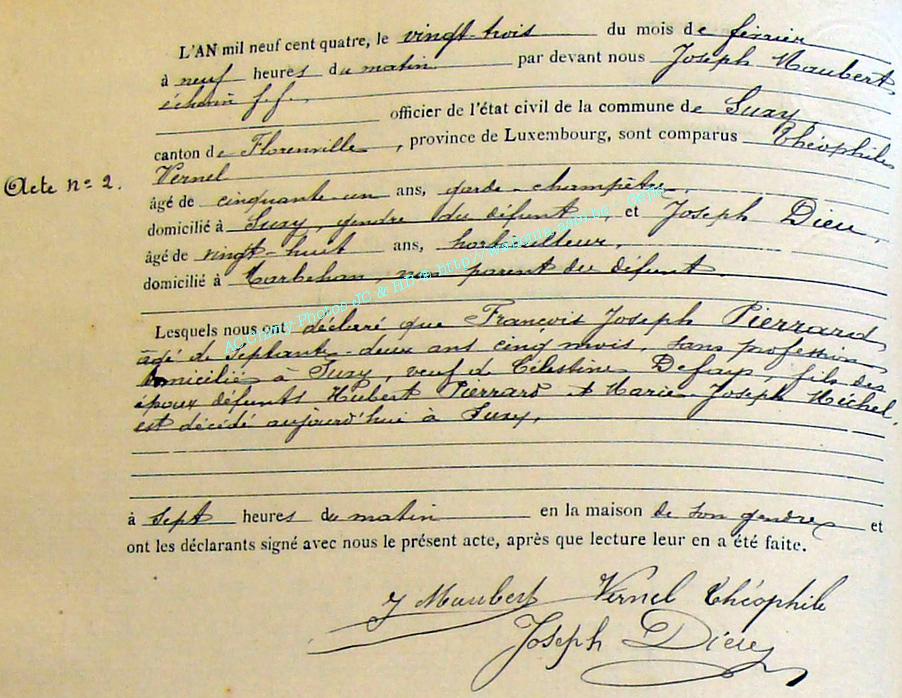 L'AN mil neuf cent quatre, le vingt-trois du mois de février
à neuf heures du matin par devant nous Joseph Maubert
échevin f.f. officier de l'état civil de la commune de Suxy,
canton de Florenville, province de Luxembourg, sont comparus Théophile
Acte n° 2.
Vernel
âgé de cinquante-un ans, garde-champêtre,
domicilié à Suxy, gendre du défunt et Joseph Dieu,
âgé de vingt-huit ans,
domicilié à Marbehan, non parent du défunt.
Lesquels nous ont déclaré que François Joseph Pierrard
âgé de septante-deux ans cinq mois, sans profession
domicilié à Suxy, veuf de Célestine Defays, fils des
époux défunts Hubert Pierrard et Marie-Joseph Michel,
est décédé aujourd'hui à Suxy,
à sept heures du matin en la maison de son gendre et
ont les déclarants signé avec nous le présent acte, après que lecture leur en a été faite.
J Maubert Vernel Théophile
Joseph Dieu
AC Chiny Photos JC & HB © http://